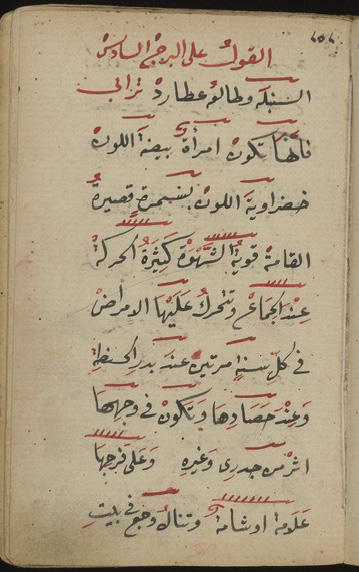 القول على البرج السادس
السنبلة وطالعه عطارد ترابي
فانها تكون امرأة بيضة اللون
خضراوية اللون بسمرة قصيرة
القامة قوية الشهوة كثيرة الحركة
عند الجماع وتتحرك عليها الامراض
في كل سنة مرتين عند بدر الحنطة
وعند حصادها وتكون في وجهها
اثر من جدري وغيره وعلى فرجها
علامة او شامة وتنال وجع في بيت